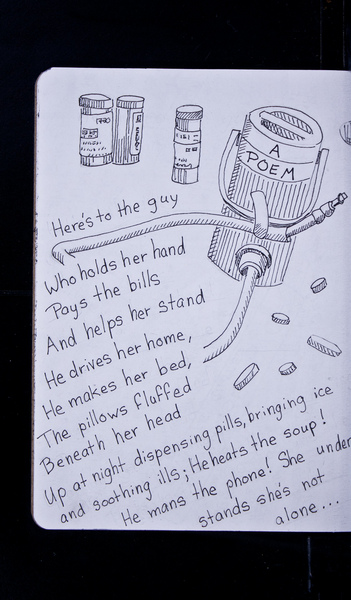 A
POEM
Here's to the guy
Who holds her hand
Pays the bills
And helps her stand
He drives her home,
He makes her bed,
The pillows fluffed
Beneath her head
Up at night dispensing pills, bringing ice
and soothing ills; He heats the soup!
He mans the phone! She under
stands she's not
alone...